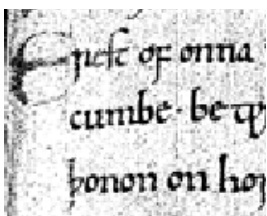 Erest of onna
cumbe· be
þonon on